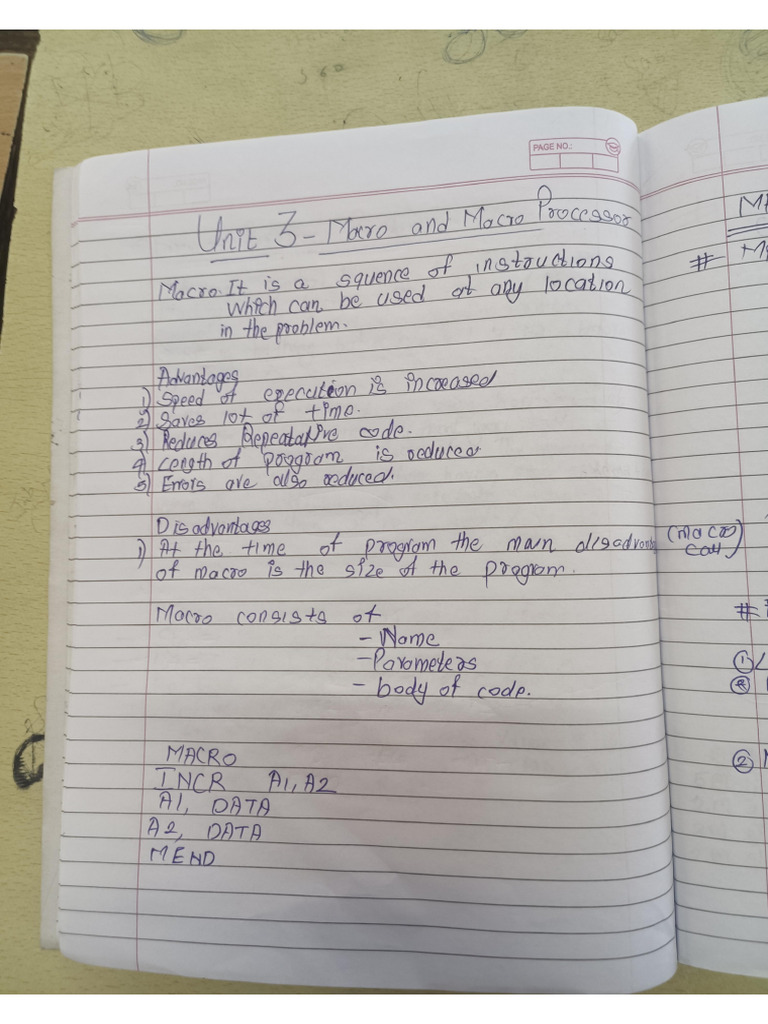 PAGE NO.:
Unit 3 - Macro and Macro Processor
Macro: It is a squence of instructions
which can be used at any location
in the problem.
Advantages
1) Speed of execution is increased
2) Saves lot of time.
3) Reduces Repeatative code.
4) Length of program is reduced
5) Errors are also reduced.
Disadvantages
1) At the time of program the main disadvan
of macro is the size of the program.
Macro consists of
- Name
- Parameters
- body of code.
MACRO
INCR A1, A2
A1, DATA
A2, DATA
MEND
#
(macro
call)
#
①
②
②